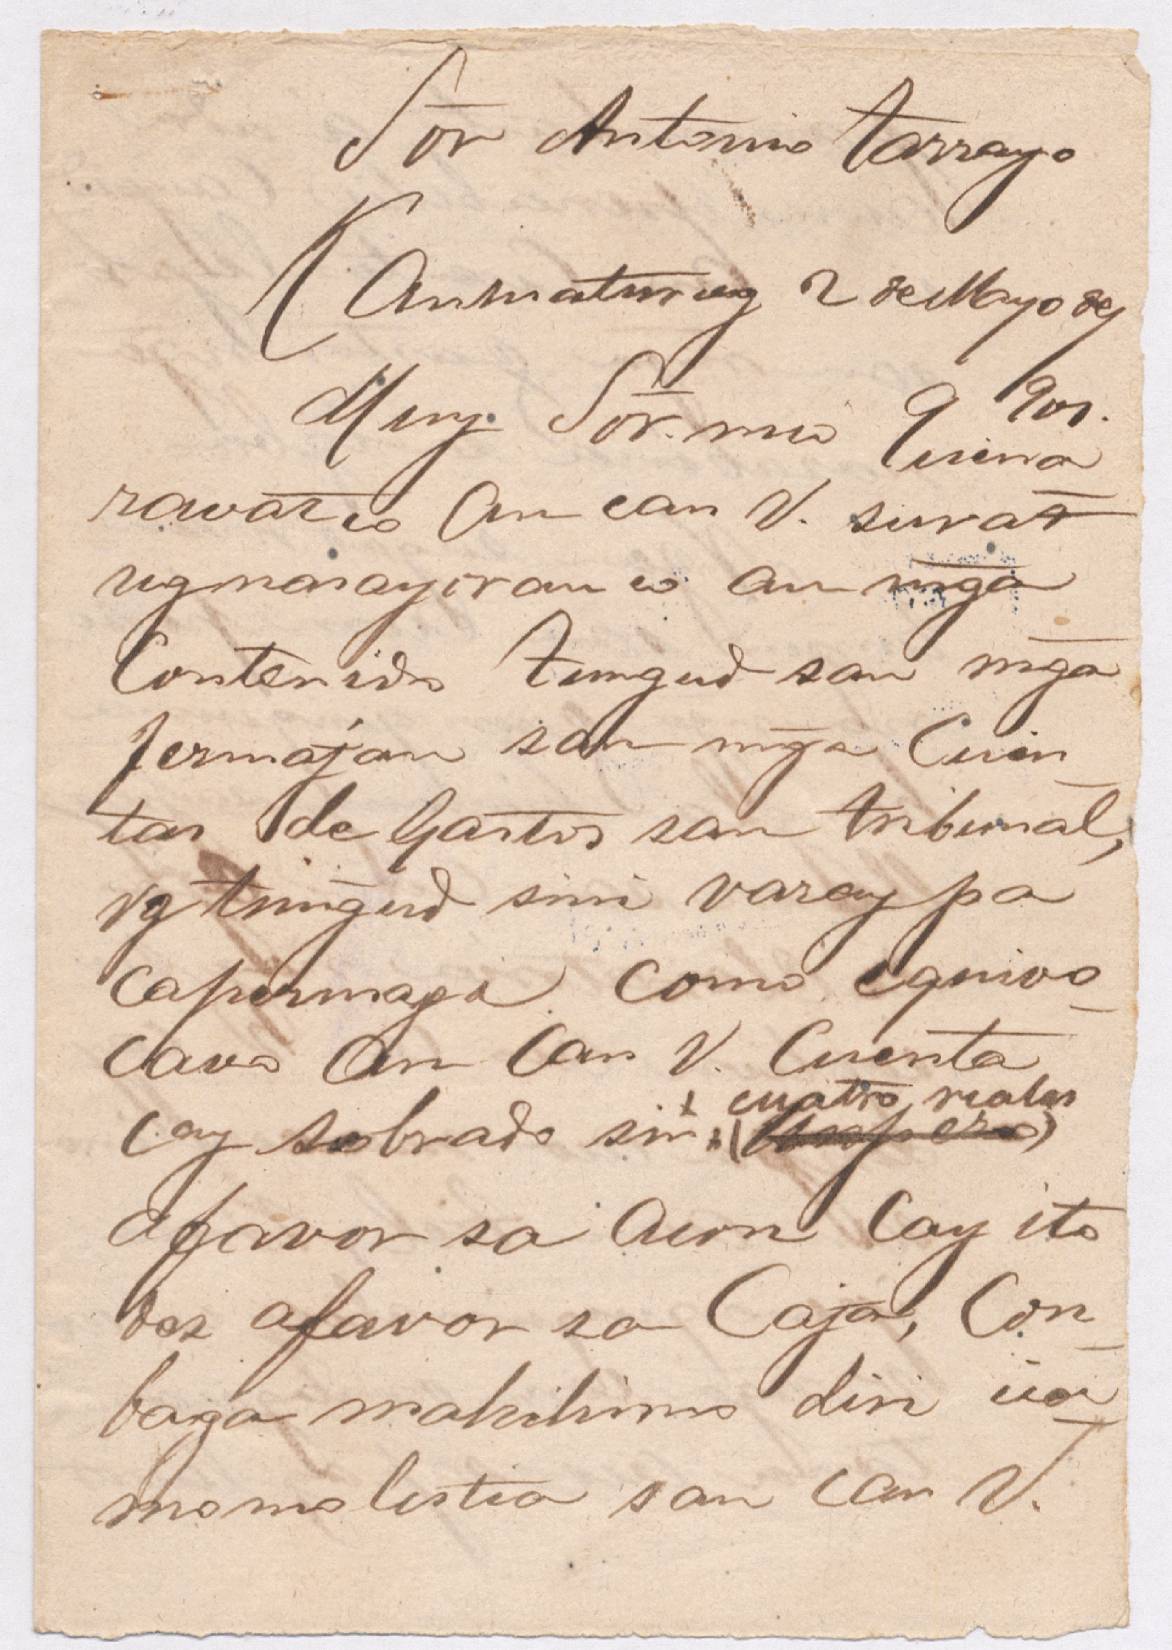 Sōr Antonio Tarrayo
Canmaturog 2 de Mayo de
901.
Muy Sōr. mio Quina
ravat co An can V. surat
ug nasayoran co an mḡa
Contenido tungud san mḡa
fermajan san mḡa Cuen
tas de Gastos san tribunal,
ug tungud sini varay pa
capermaje como equivo
cava An Can V. Cuenta
cuatro reales
Cay sobrado sin
afavor sa Acon Cay ito
dos afavor sa Caja, Con
baga mahihimo diri
momolestia san can V.